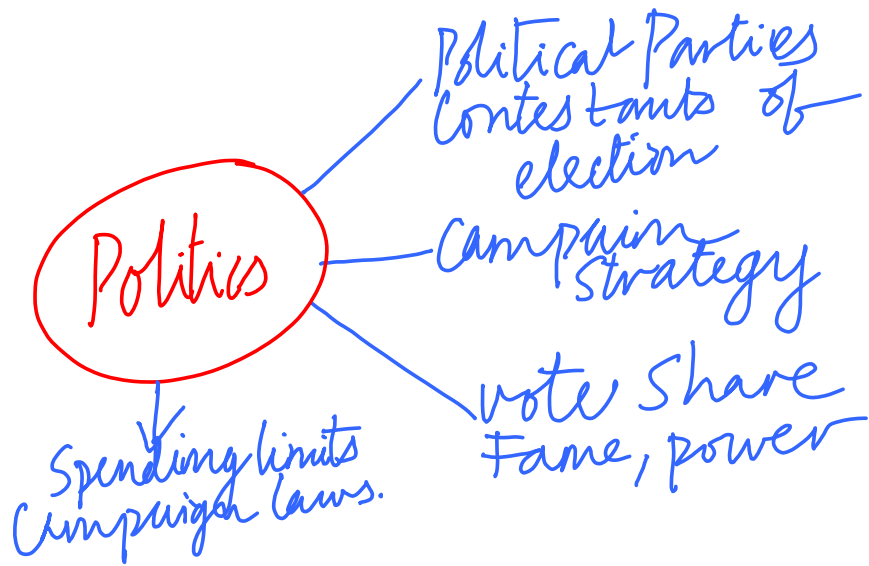 Political Parties
Contestants of
election
Politics
Campaim
Strategy
vote Share
Fame, power
Spending limits
Campaign laws.